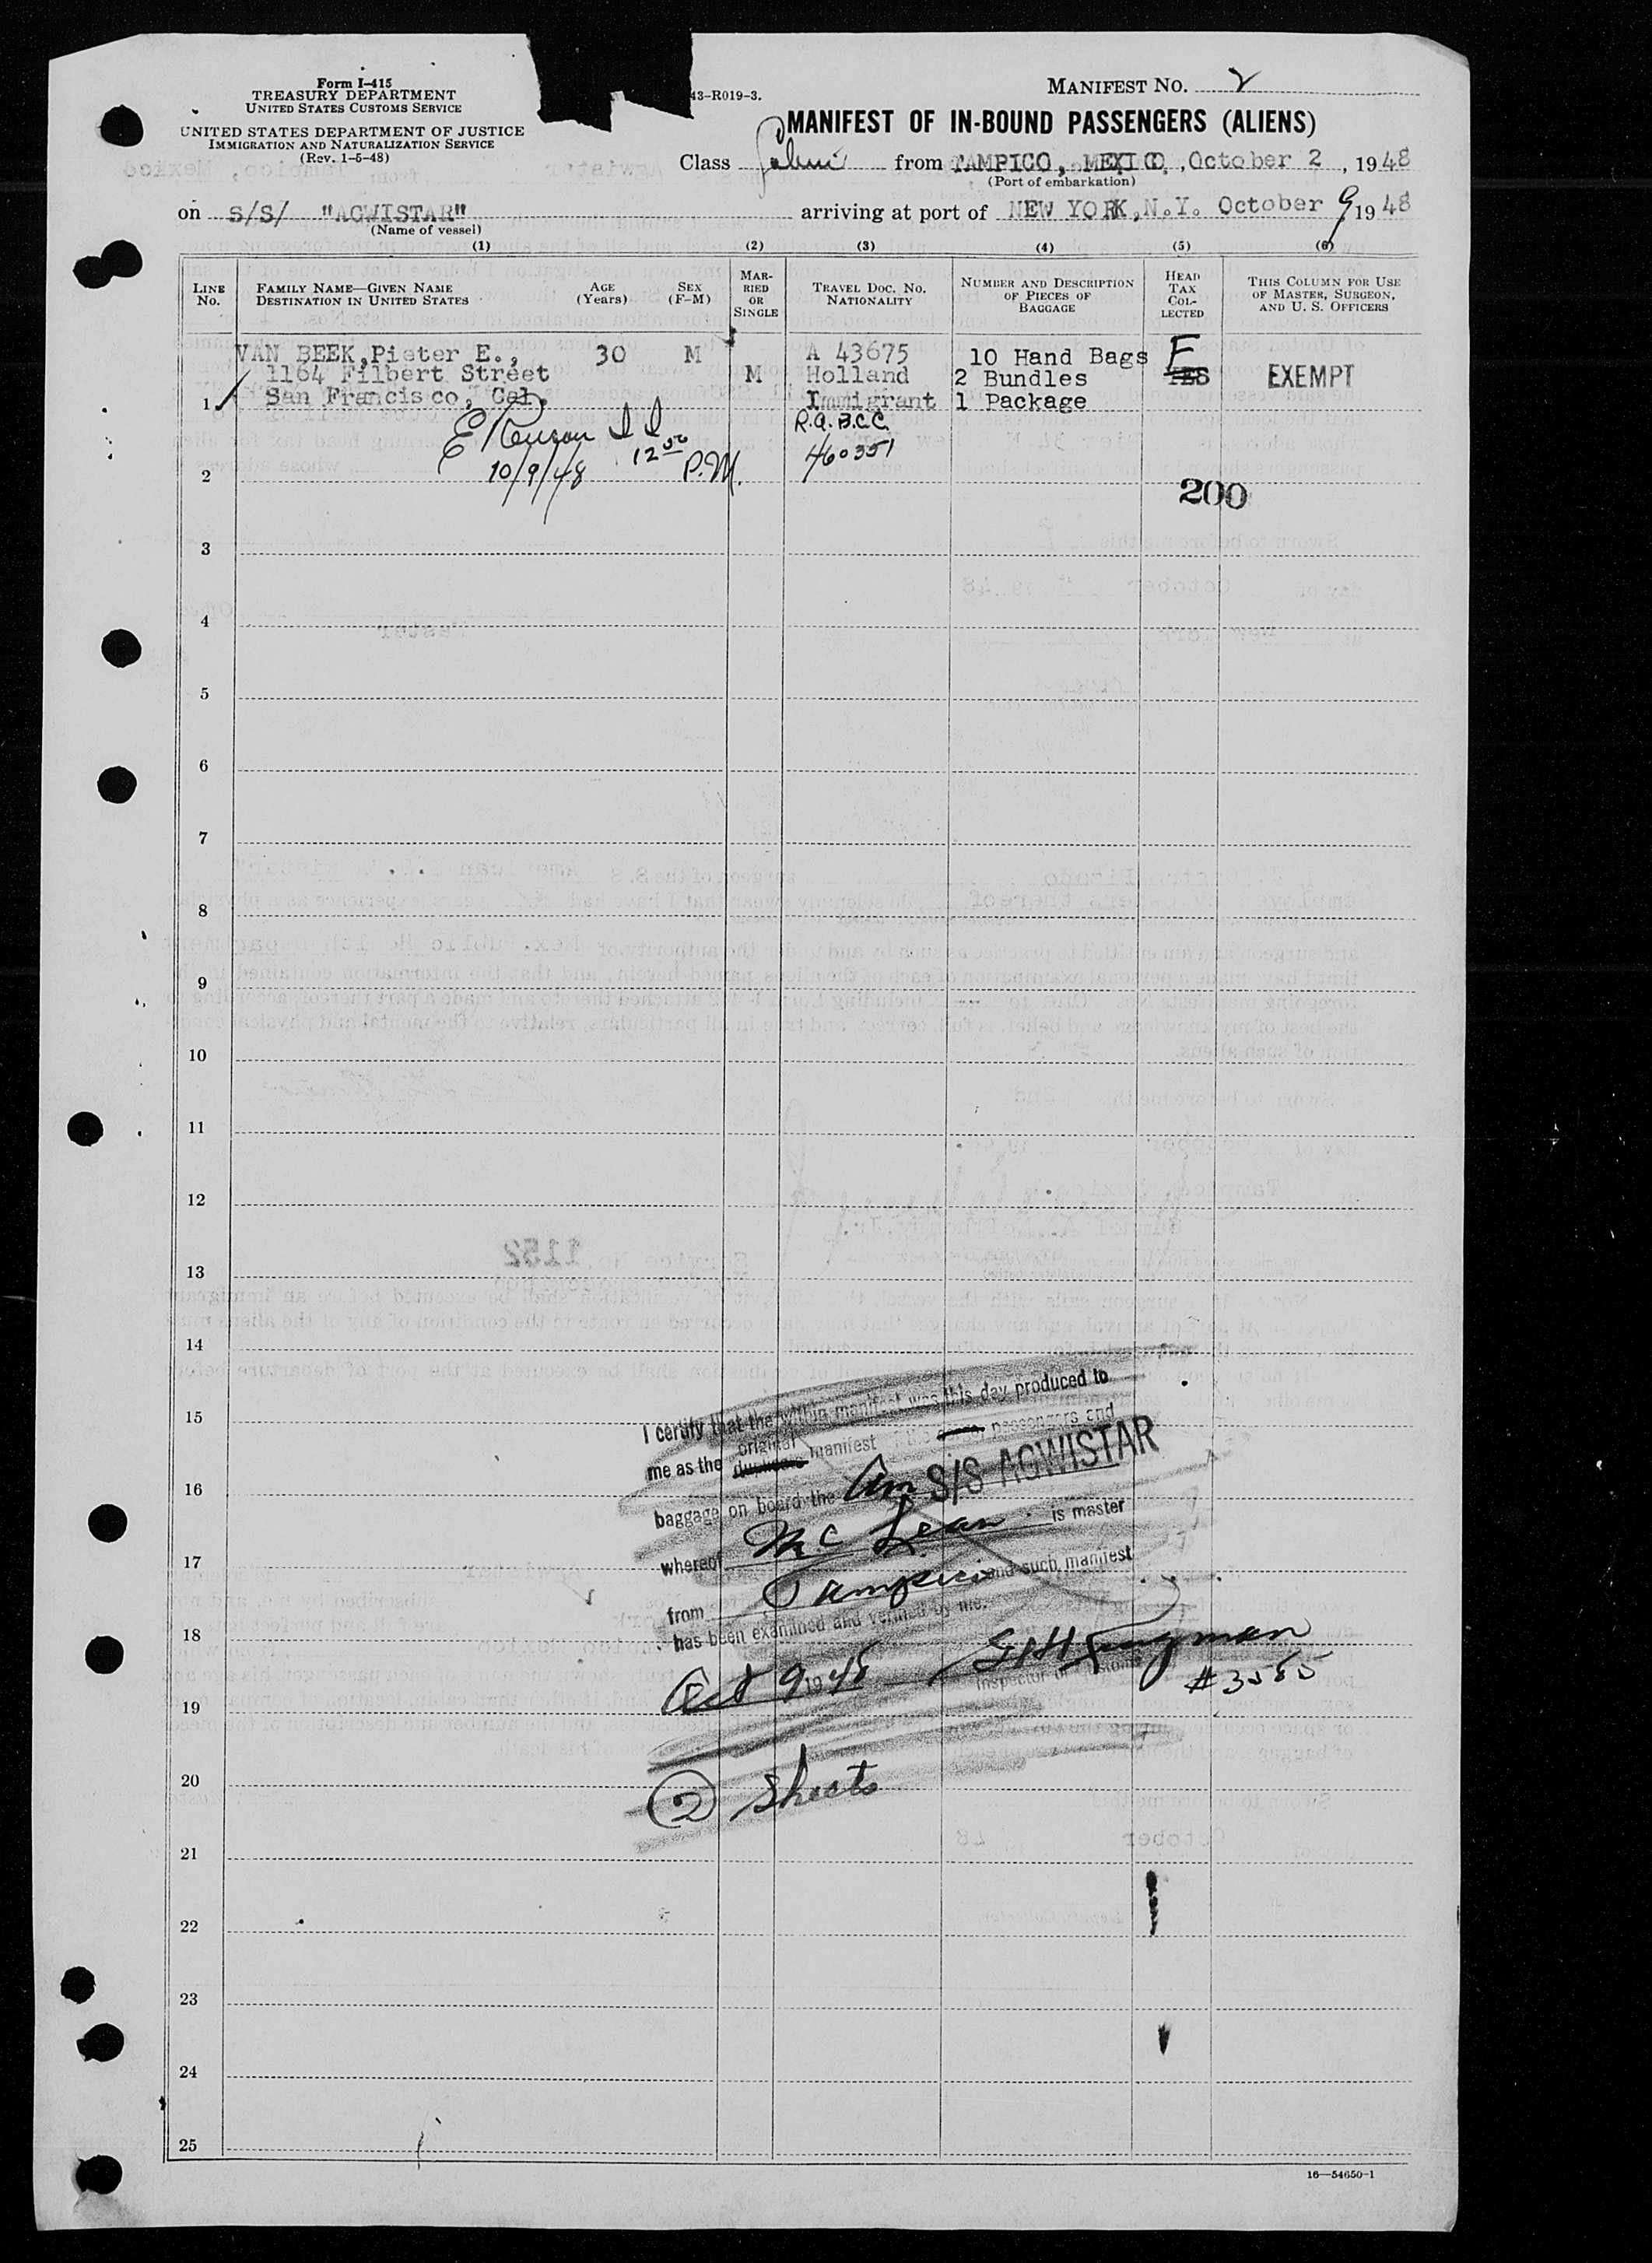 Form I-415
TREASURY DEPARTMENT
UNITED STATES CUSTOMS SERVICE
UNITED STATES DEPARTMENT OF JUSTICE
IMMIGRATION AND NATURALIZATION SERVICE
(Rev. 1-5-48)
43-R019-3.
MANIFEST NO. 2
MANIFEST OF IN-BOUND PASSENGERS (ALIENS)
Class from TAMPICO, MEXICO, October 2, 1948
(Port of embarkation)
on S/S/ "AGWISTAR" arriving at port of NEW YORK, N.Y. October 9 1948
(Name of vessel)
(1) (2) (3) (4) (5) (6)
LINE No. FAMILY NAME—GIVEN NAME DESTINATION IN UNITED STATES AGE (Years) SEX (F-M) MARRIED OR SINGLE TRAVEL DOC. NO. NATIONALITY NUMBER AND DESCRIPTION OF PIECES OF BAGGAGE HEAD TAX COLLECTED THIS COLUMN FOR USE OF MASTER, SURGEON, AND U. S. OFFICERS
VAN BEEK, Pieter E., 30 M A 43675 10 Hand Bags E
1164 Filbert Street M Holland 2 Bundles YES EXEMPT
1 San Francisco, Cal. Immigrant 1 Package
R.A. B.C.C.
10/9/48 12 50 P.M. 460351
2
200
3
4
5
6
7
8
9
10
11
12
13
14
I certify that the within manifest was this day produced to
15
me as the original manifest of the passengers and
16
baggage on board the Am S/S AGWISTAR
whereof Mc Lean is master
17
from Tampico and such manifest
has been examined and verified by me.
18
Oct 9 1948
Inspector of Customs
#3585
19
20
2 Sheets
21
22
23
24
25
16—54650-1